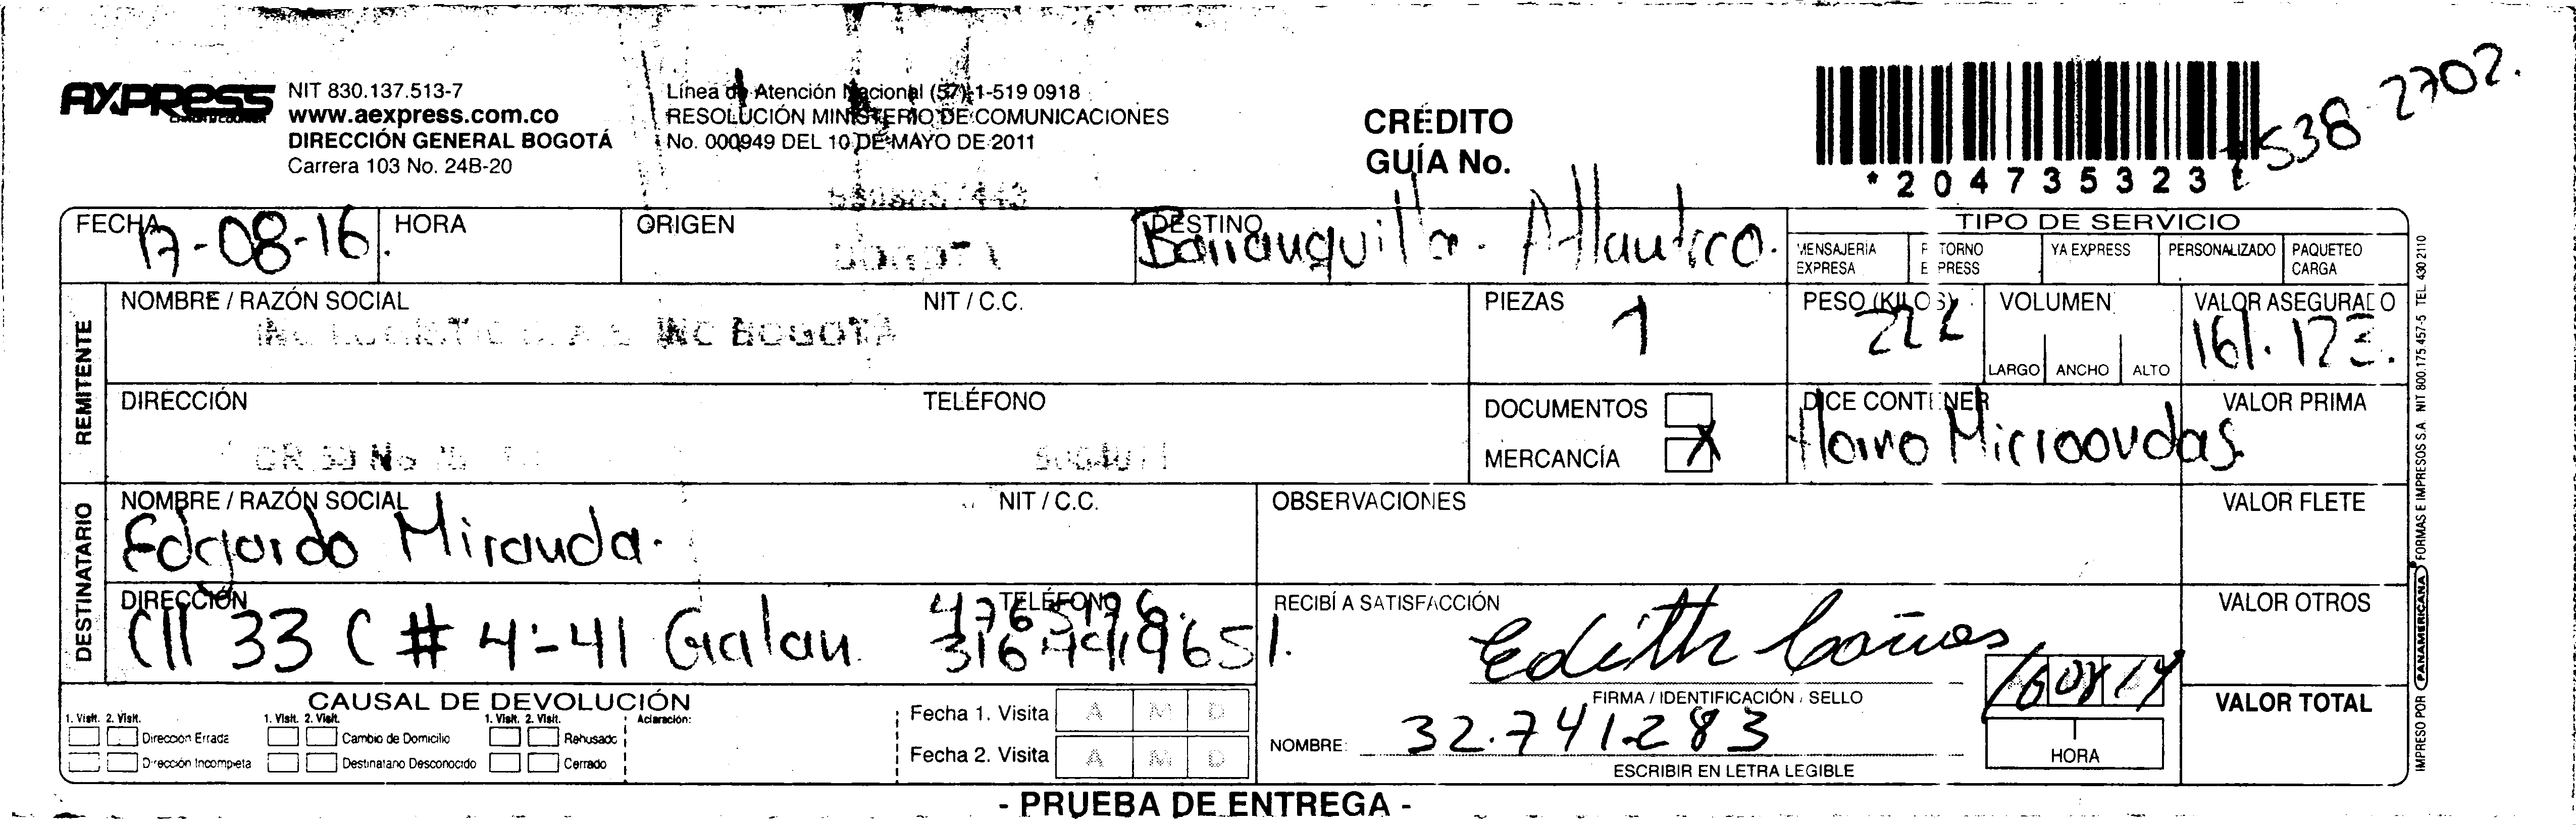 AXPRESS
NIT 830.137.513-7
www.aexpress.com.co
DIRECCIÓN GENERAL BOGOTÁ
Carrera 103 No. 24B-20
Línea de Atención Nacional (57)-1-519 0918
RESOLUCIÓN MINISTERIO DE COMUNICACIONES
No. 000949 DEL 10 DE MAYO DE 2011
CRÉDITO
GUÍA No.
*2047353231
538-2702.
FECHA 17-08-16
HORA
ORIGEN
BOGOTA
DESTINO Barranquilla - Atlantico.
TIPO DE SERVICIO
MENSAJERÍA EXPRESA
RETORNO EXPRESS
YA EXPRESS
PERSONALIZADO
PAQUETEO CARGA
REMITENTE
NOMBRE / RAZÓN SOCIAL
NIT / C.C.
INC LOGISTIC S.A.S INC BOGOTA
PIEZAS
1
PESO (KILOS)
VOLUMEN
LARGO ANCHO ALTO
VALOR ASEGURADO
161.173.
DIRECCIÓN
TELÉFONO
DOCUMENTOS
MERCANCÍA X
DICE CONTENER
Horno Microondas
VALOR PRIMA
DESTINATARIO
NOMBRE / RAZÓN SOCIAL
NIT / C.C.
Edgardo Miranda.
OBSERVACIONES
VALOR FLETE
DIRECCIÓN
Cll 33 C # 4-41 Galan
TELÉFONO
RECIBÍ A SATISFACCIÓN
Edith
FIRMA / IDENTIFICACIÓN / SELLO
VALOR OTROS
CAUSAL DE DEVOLUCIÓN
1. Visit. 2. Visit.
1. Visit. 2. Visit.
1. Visit. 2. Visit.
Aclaración:
Dirección Errada
Cambio de Domicilio
Rehusado
Dirección Incompleta
Destinatario Desconocido
Cerrado
Fecha 1. Visita A M D
Fecha 2. Visita A M D
NOMBRE: 32.741.283
ESCRIBIR EN LETRA LEGIBLE
HORA
VALOR TOTAL
- PRUEBA DE ENTREGA -
IMPRESO POR PANAMERICANA FORMAS E IMPRESOS S.A. NIT 800.175.457-5 TEL. 430 2110